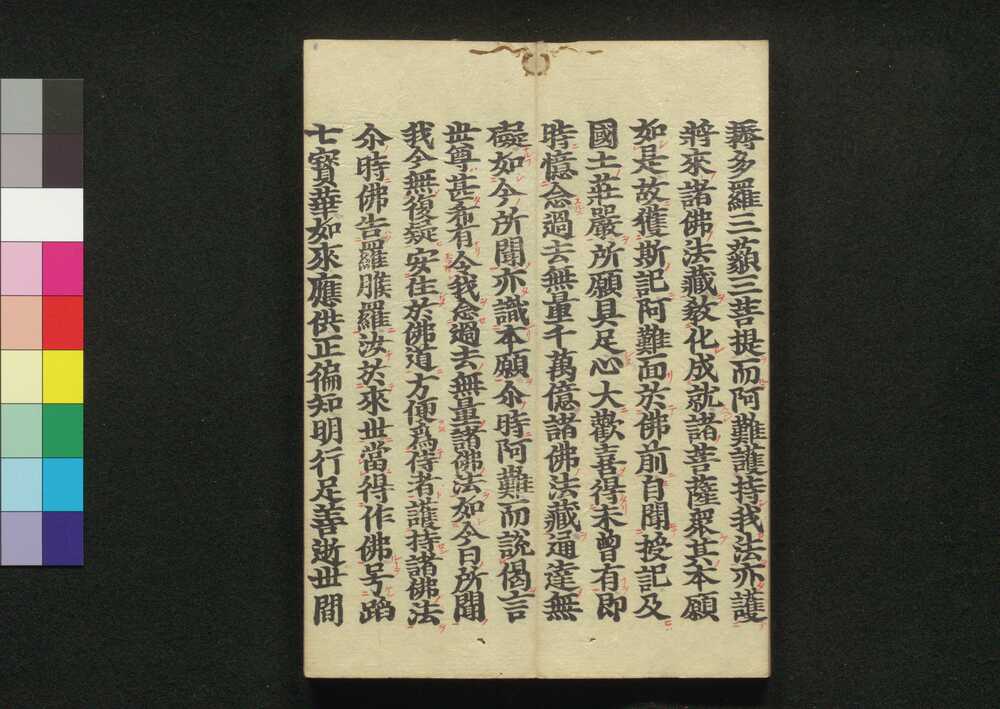 耨多羅三藐三菩提而阿難護持我法亦護
將來諸佛法藏敎化成就諸菩薩衆其本願
如是故獲斯記阿難面於佛前自聞授記及
國土莊嚴所願具足心大歡喜得未曾有即
時憶念過去無量千萬億諸佛法藏通達無
礙如今所聞亦識本願尒時阿難而說偈言
世尊甚希有令我念過去無量諸佛法如今日所聞
我今無復疑安住於佛道方便爲侍者護持諸佛法
尒時佛告羅睺羅汝於來世當得作佛号蹈
七寳華如來應供正徧知明行足善逝世間